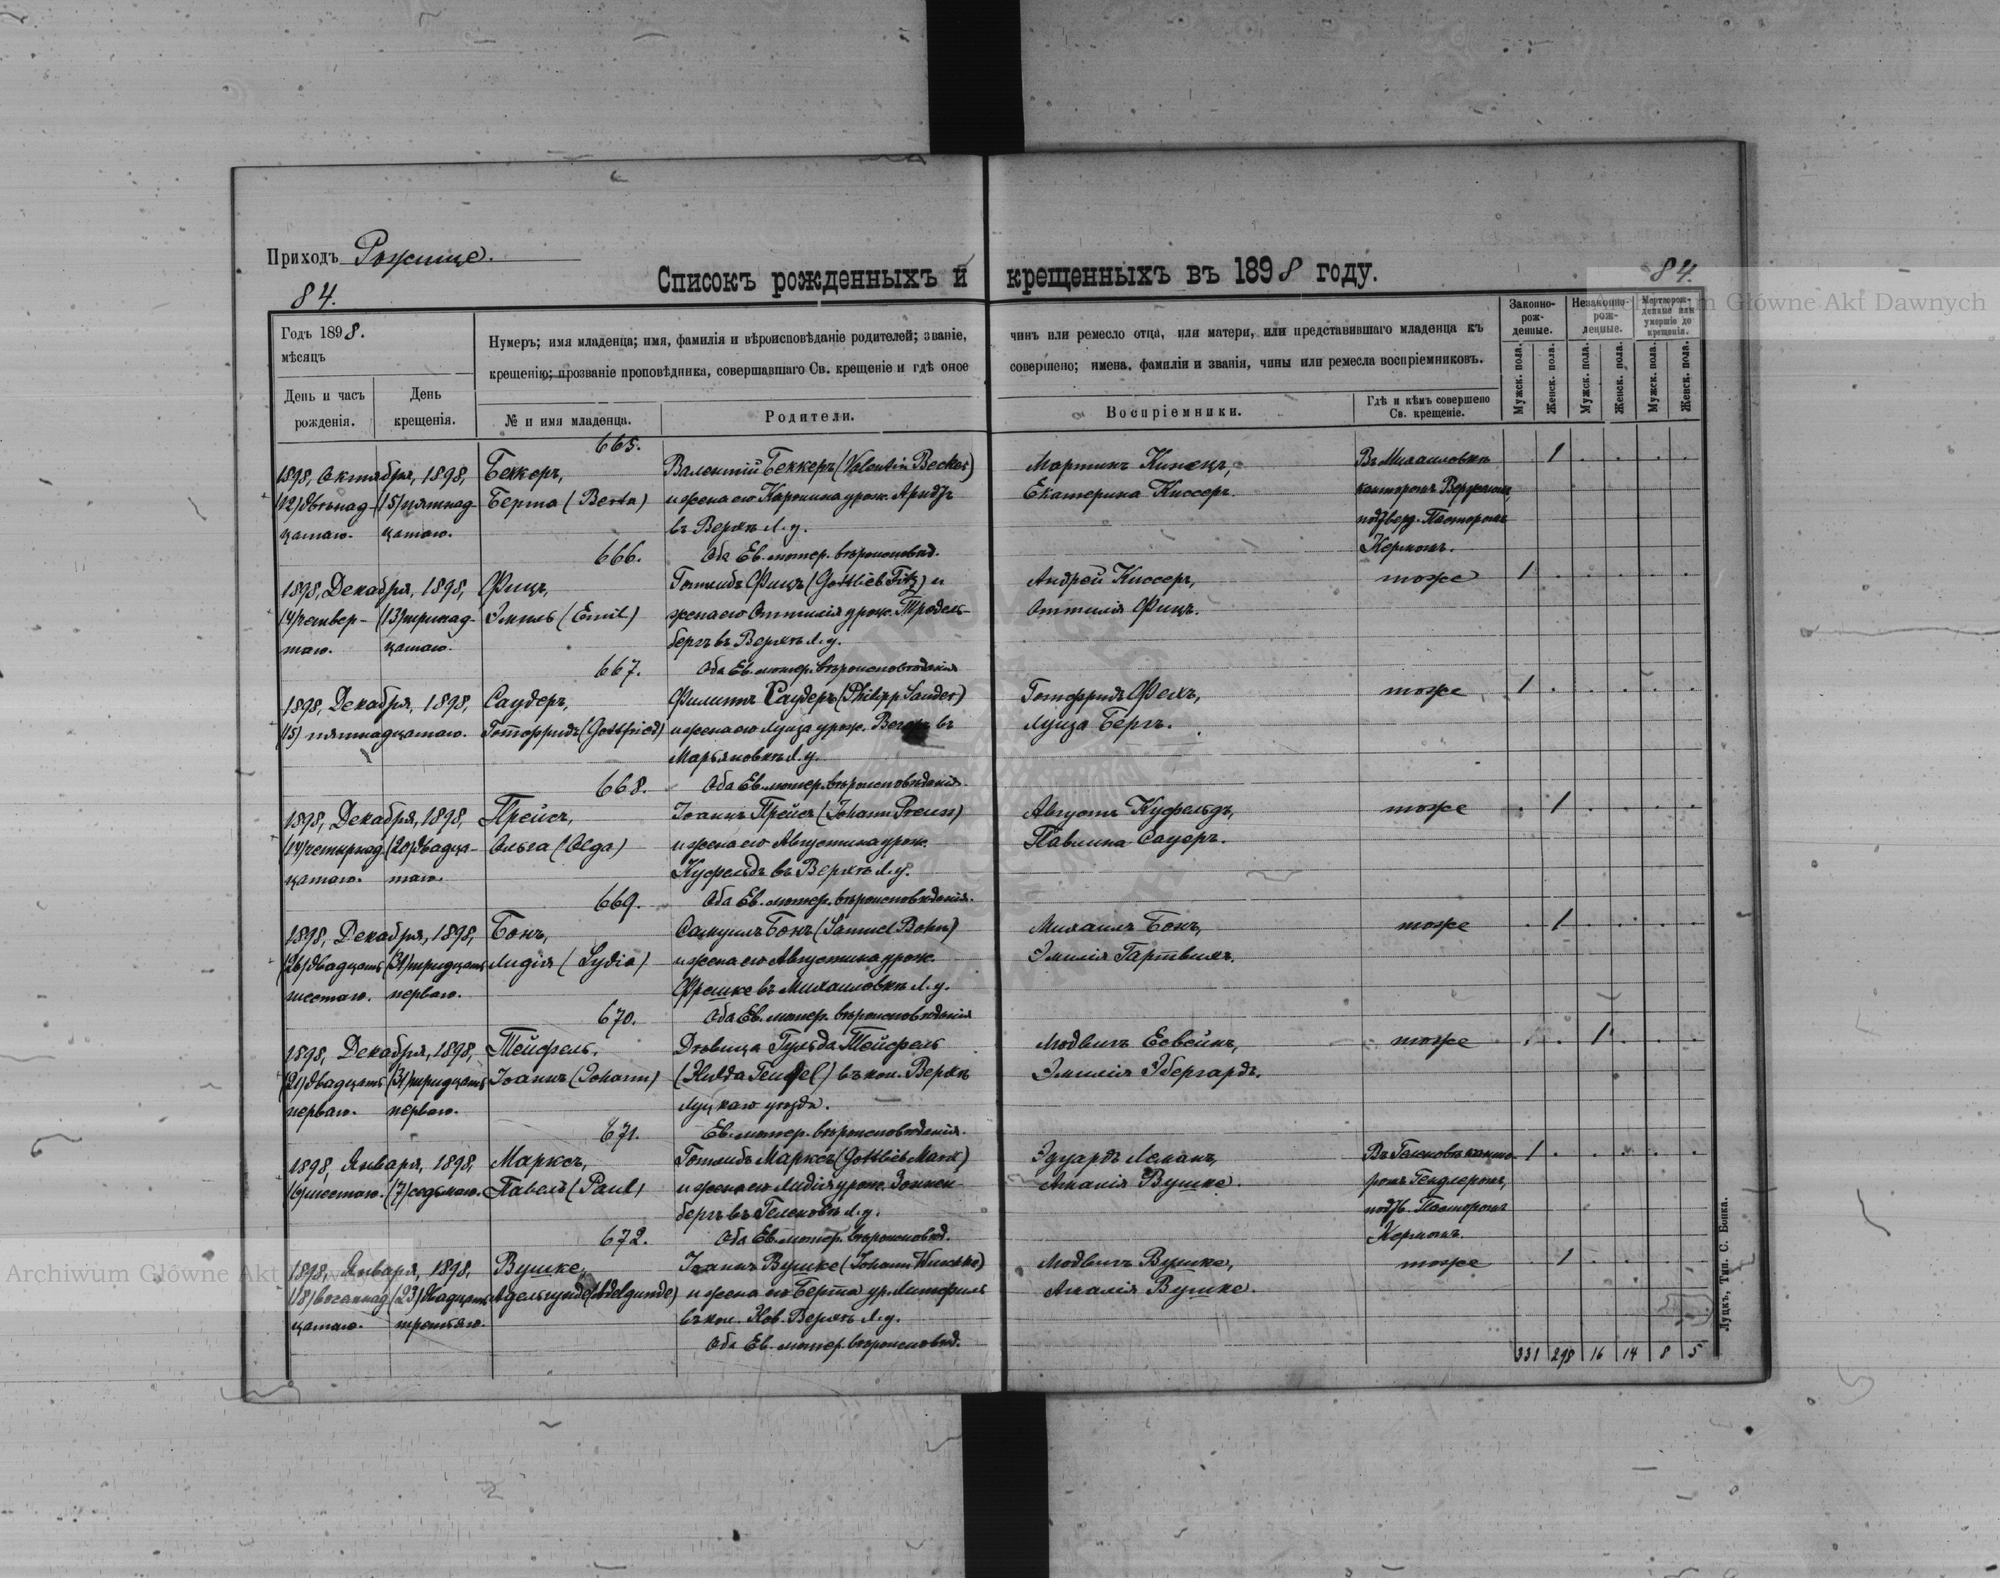 Приходъ Рожище.
84.
Списокъ рожденныхъ и крещенныхъ въ 1898 году.
84.
Archiwum Główne Akt Dawnych
Годъ 1898.
мѣсяцъ
День и часъ рожденія.
День крещенія.
Нумеръ; имя младенца; имя, фамилія и вѣроисповѣданіе родителей; званіе, чинъ или ремесло отца, или матери, или представившаго младенца къ
крещенію; прозваніе проповѣдника, совершавшаго Св. крещеніе и гдѣ оное совершено; имена, фамиліи и званія, чины или ремесла воспріемниковъ.
№ и имя младенца.
Родители.
Воспріемники.
Гдѣ и кѣмъ совершено Св. крещеніе.
Законно-рож-денные.
Незаконно-рож-денные.
Мертворож-денные или умершіе до крещенія.
Мужск. пола.
Женск. пола.
Мужск. пола.
Женск. пола.
Мужск. пола.
Женск. пола.
665.
1898, Октября, 1898, Беккеръ, Валентій Беккеръ (Valentin Becker) Мартинъ Кинецъ, Въ Михаиловкѣ 1
(12) двѣнад- (15) пятнад- Берта (Berta) и жена его Каролина урож. Арндтъ Екатерина Киссеръ. канторомъ
цатаго. цатаго. въ Верхѣ Л. у. подтверд. Пасторомъ
666. Оба Ев. лютер. вѣроисповѣд. Керномъ.
1898, Декабря, 1898, Фицъ, Готлибъ Фицъ (Gottlieb Fitz) и Андрей Киссеръ, тоже 1
(4) четвер- (13) тринад- Эмиль (Emil) жена его Оттилія урож. Тродель- Оттилія Фицъ.
таго. цатаго. бергъ въ Верхѣ Л. у.
667. Оба Ев. лютер. вѣроисповѣданія
1898, Декабря, 1898, Саудеръ, Филиппъ Саудеръ (Philipp Sauder) Готфридъ тоже 1
(15) пятнадцатаго. Готфридъ (Gottfried) и жена его Луиза урож. въ Луиза Бергъ.
Марьяновкѣ Л. у.
668. Оба Ев. лютер. вѣроисповѣданія.
1898, Декабря, 1898, Прейсъ, Іоаннъ Прейсъ (Johann Preuss) Августъ Куфельдъ, тоже 1
(14) четырнад- (20) двадца- Ольга (Olga) и жена его Августина урож. Павлина Сауеръ.
цатаго. таго. Куфельдъ въ Верхѣ Л. у.
669. Оба Ев. лютер. вѣроисповѣданія.
1898, Декабря, 1898, Бонъ, Самуилъ Бонъ (Samuel Bohn) Михаилъ Бонъ, тоже 1
(26) двадцать (31) тридцать Лидія (Lydia) и жена его Августина урож. Эмилія Гартвихъ.
шестаго. перваго. Фрешке въ Михаиловкѣ Л. у.
670. Оба Ев. лютер. вѣроисповѣданія
1898, Декабря, 1898, Тейфель, Дѣвица Гульда Тейфель Людвигъ тоже 1
(21) двадцать (31) тридцать Іоаннъ (Johann) (Hulda Teufel) въ кол. Верхѣ Эмилія Эбергардъ.
перваго. перваго. Луцкаго уѣзда.
671. Ев. лютер. вѣроисповѣданія.
1898, Января, 1898, Марксъ, Готлибъ Марксъ (Gottlieb Marx) Эдуардъ Леманъ, Въ канто- 1
(6) шестаго. (7) седьмаго. Павелъ (Paul) и жена его Лидія урож. Зоннен- Амалія Вушке. ромъ Гендлеромъ,
бергъ въ Л. у. подтв. Пасторомъ
672. Оба Ев. лютер. вѣроисповѣд. Керномъ.
1898, Января, 1898, Вушке, Іоаннъ Вушке (Johann Wuschke) Людвигъ Вушке, тоже 1
(18) восемнад- (23) двадцать Адельгунде (Adelgunde) и жена его Берта ур. Амалія Вушке.
цатаго. третьяго. въ кол. Нов. Верхѣ Л. у.
Оба Ев. лютер. вѣроисповѣд.
331 298 16 14 8 5
Луцкъ, Тип. С. Бонка.
Archiwum Główne Akt Dawnych